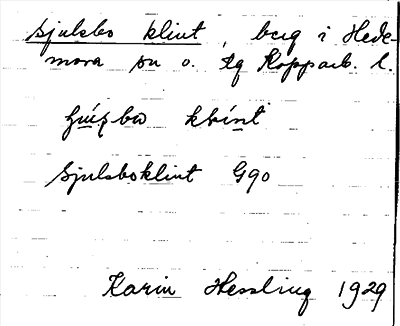 Sjulsbo klint, berg i Hede-
mora sn o. tg Kopparb. l.
klint
Sjulsboklint G90
Karin Hessling 1929